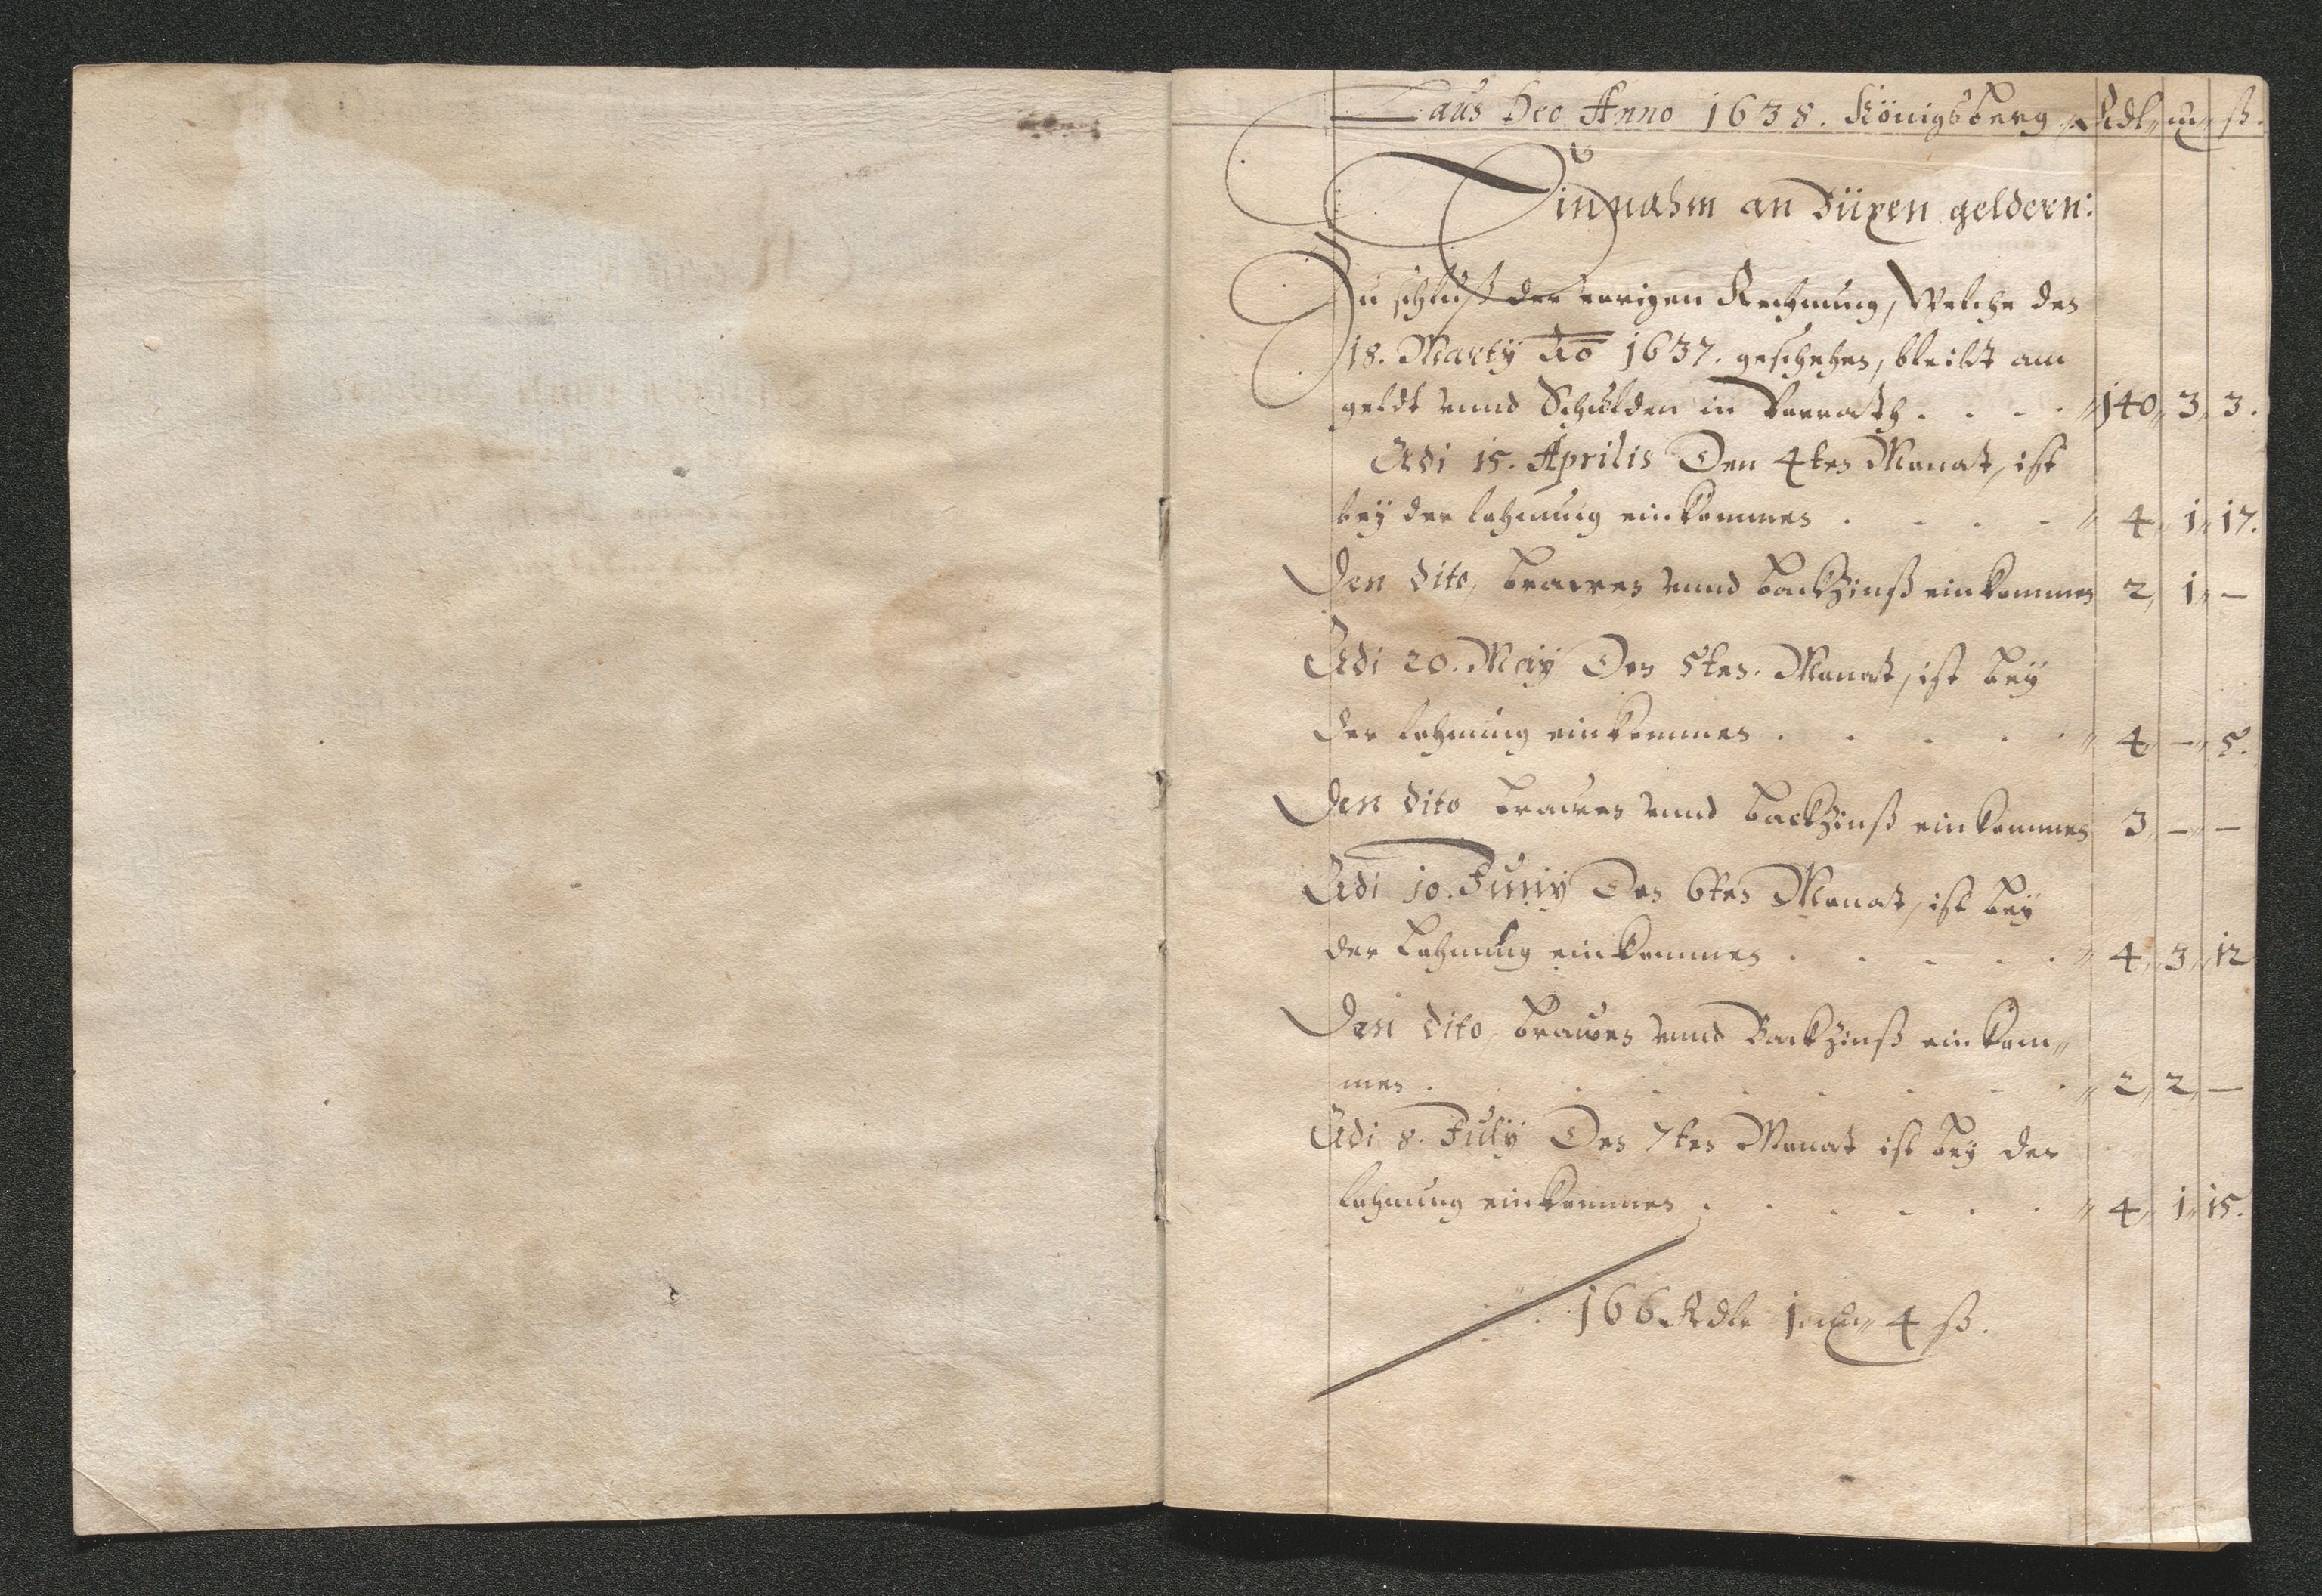 Laus Deo Anno 1638. Königsberg Rdl m ß.
Einnahm an Büxen geldern:
Zu schluß der vorigen Rechnung, Welche den
18. Marty Ao 1637. geschehen, bleibt am
geldt unnd Schulden in Vorrath . . . . 140 3 3.
Adi 15. Aprilis Den 4ten Monat, ist
bey der lohnung einkommen . . . . 4 1 17.
Den dito, brawen unnd backzinß einkommen 2 1 —
Adi 20. May Den 5ten. Monat, ist bey
der lohnung einkommen . . . . . 4 — 5.
Den dito brawen unnd backzinß einkommen 3 — —
Adi 10. Juny Den 6ten Monat, ist bey
der Lohnung einkommen . . . . . 4 3 12
Den dito, brawen unnd Backzinß einkom„
men . . . . . . . 2 2 —
Adi 8. July Den 7ten Monat ist bey der
lohnung einkommen . . . . . . 4 1 15.
166 Rdlr 1 m 4 ß.